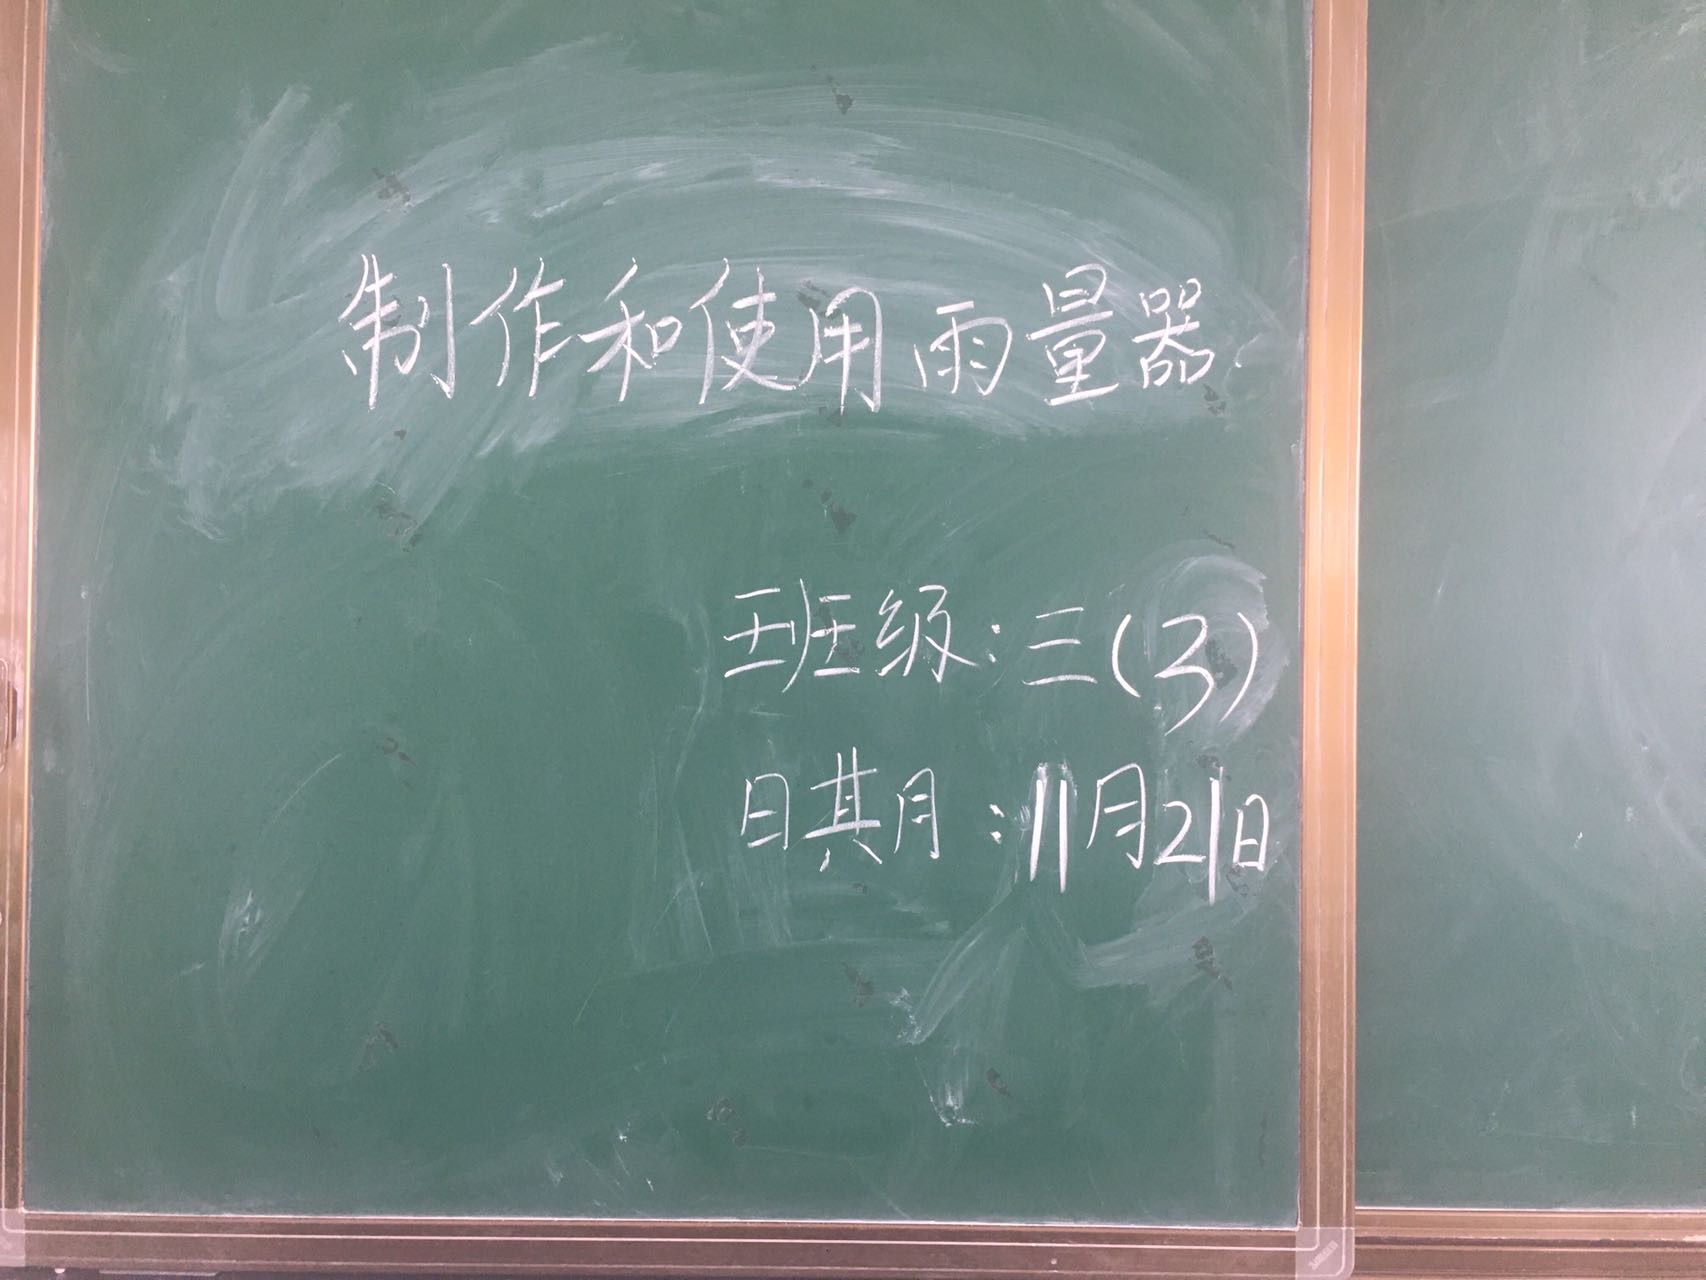 制作和使用雨量器
班级:三(3)
日期:11月21日